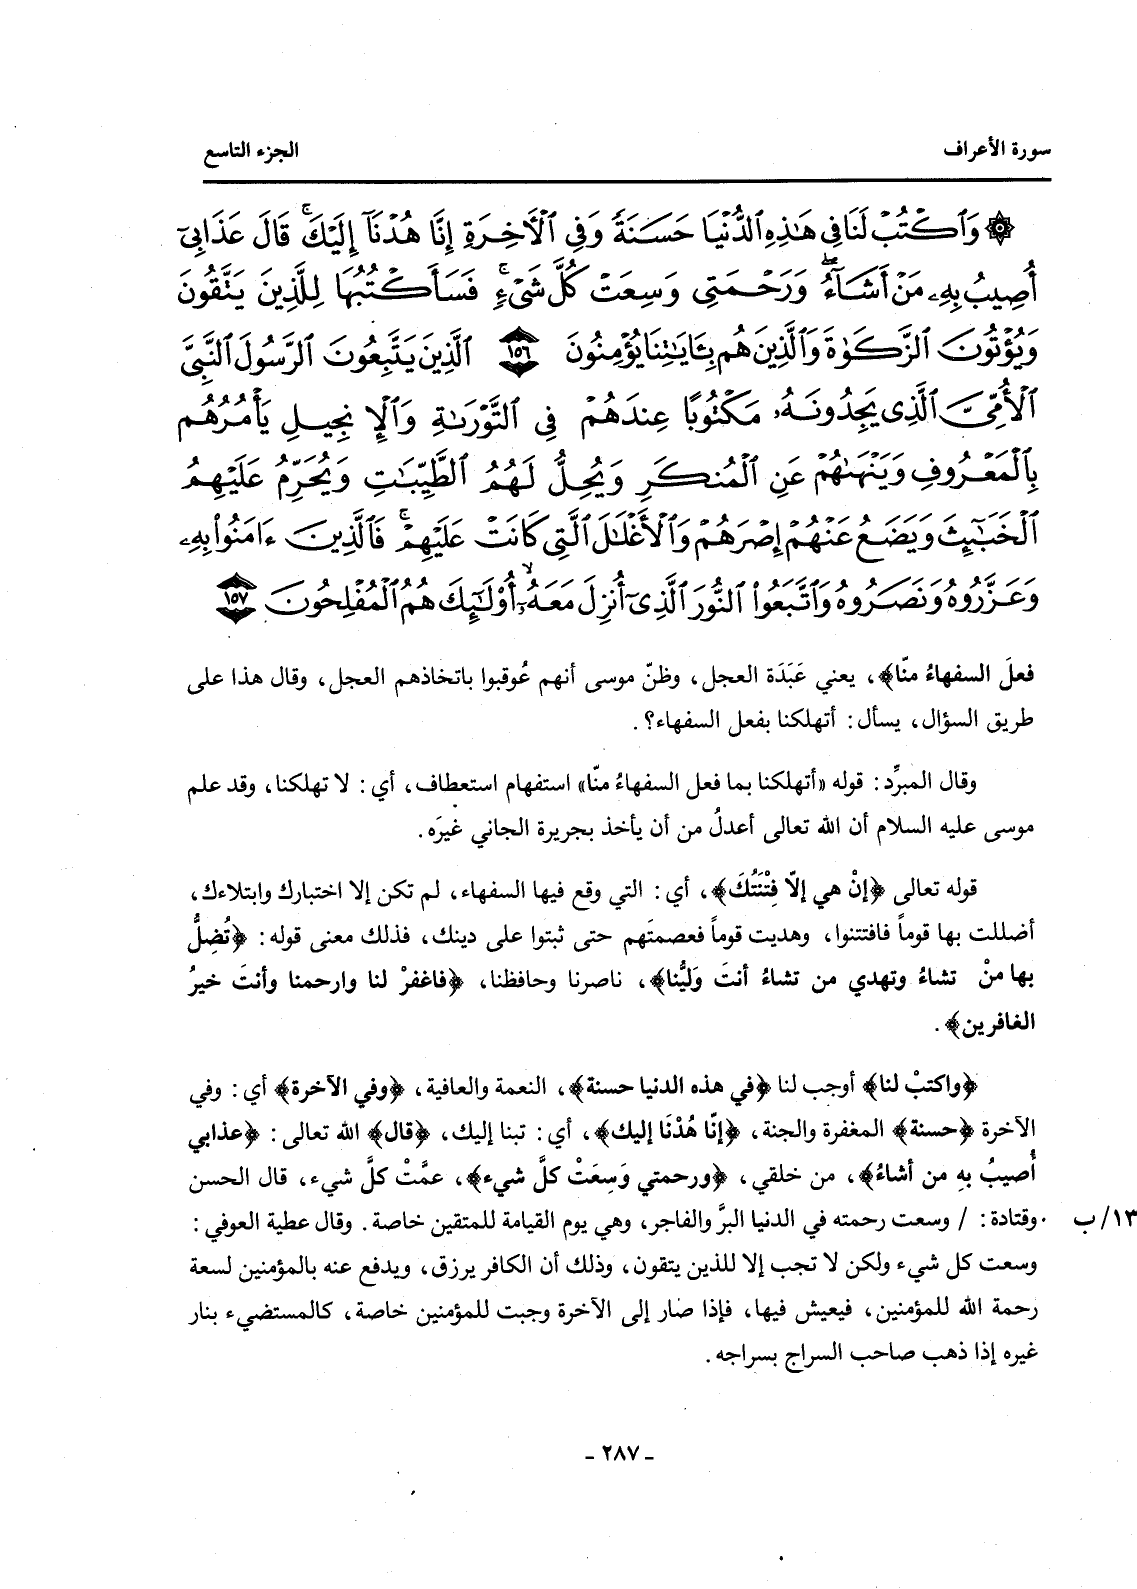 سورة الأعراف
الجزء التاسع
۞ وَٱكۡتُبۡ لَنَا فِي هَٰذِهِ ٱلدُّنۡيَا حَسَنَةٗ وَفِي ٱلۡأٓخِرَةِ إِنَّا هُدۡنَآ إِلَيۡكَۚ قَالَ عَذَابِيٓ
أُصِيبُ بِهِۦ مَنۡ أَشَآءُۖ وَرَحۡمَتِي وَسِعَتۡ كُلَّ شَيۡءٖۚ فَسَأَكۡتُبُهَا لِلَّذِينَ يَتَّقُونَ
وَيُؤۡتُونَ ٱلزَّكَوٰةَ وَٱلَّذِينَ هُم بِـَٔايَٰتِنَا يُؤۡمِنُونَ ١٥٦ ٱلَّذِينَ يَتَّبِعُونَ ٱلرَّسُولَ ٱلنَّبِيَّ
ٱلۡأُمِّيَّ ٱلَّذِي يَجِدُونَهُۥ مَكۡتُوبًا عِندَهُمۡ فِي ٱلتَّوۡرَىٰةِ وَٱلۡإِنجِيلِ يَأۡمُرُهُم
بِٱلۡمَعۡرُوفِ وَيَنۡهَىٰهُمۡ عَنِ ٱلۡمُنكَرِ وَيُحِلُّ لَهُمُ ٱلطَّيِّبَٰتِ وَيُحَرِّمُ عَلَيۡهِمُ
ٱلۡخَبَٰٓئِثَ وَيَضَعُ عَنۡهُمۡ إِصۡرَهُمۡ وَٱلۡأَغۡلَٰلَ ٱلَّتِي كَانَتۡ عَلَيۡهِمۡۚ فَٱلَّذِينَ ءَامَنُواْ بِهِۦ
وَعَزَّرُوهُ وَنَصَرُوهُ وَٱتَّبَعُواْ ٱلنُّورَ ٱلَّذِيٓ أُنزِلَ مَعَهُۥٓۙ أُوْلَٰٓئِكَ هُمُ ٱلۡمُفۡلِحُونَ ١٥٧
فعلَ السفهاءُ منّا﴾، يعني عَبَدَة العجل، وظنّ موسى أنهم عُوقبوا باتخاذهم العجل، وقال هذا على
طريق السؤال، يسأل: أتهلكنا بفعل السفهاء؟.
وقال المبرِّد: قوله «أتهلكنا بما فعل السفهاءُ منّا» استفهام استعطاف، أي: لا تهلكنا، وقد علم
موسى عليه السلام أن الله تعالى أعدلُ من أن يأخذ بجريرة الجاني غيرَه.
قوله تعالى ﴿إنْ هي إلّا فِتْنَتُكَ﴾، أي: التي وقع فيها السفهاء، لم تكن إلا اختبارك وابتلاءك،
أضللت بها قوماً فافتتنوا، وهديت قوماً فعصمتَهم حتى ثبتوا على دينك، فذلك معنى قوله: ﴿تُضِلُّ
بها منْ تشاءُ وتهدي من تشاءُ أنتَ وَليُّنا﴾، ناصرنا وحافظنا، ﴿فاغفرْ لنا وارحمنا وأنتَ خيرُ
الغافرين﴾.
﴿واكتبْ لنا﴾ أوجب لنا ﴿في هذه الدنيا حسنة﴾، النعمة والعافية، ﴿وفي الآخرة﴾ أي: وفي
الآخرة ﴿حسنة﴾ المغفرة والجنة، ﴿إنّا هُدْنَا إليك﴾، أي: تبنا إليك، ﴿قال﴾ الله تعالى: ﴿عذابي
أُصيبُ بهِ من أشاءُ﴾، من خلقي، ﴿ورحمتي وَسِعَتْ كلَّ شيء﴾، عمَّتْ كلَّ شيء، قال الحسن
١٣/ب وقتادة: / وسعت رحمته في الدنيا البرَّ والفاجر، وهي يوم القيامة للمتقين خاصة. وقال عطية العوفي:
وسعت كل شيء ولكن لا تجب إلا للذين يتقون، وذلك أن الكافر يرزق، ويدفع عنه بالمؤمنين لسعة
رحمة الله للمؤمنين، فيعيش فيها، فإذا صار إلى الآخرة وجبت للمؤمنين خاصة، كالمستضيء بنار
غيره إذا ذهب صاحب السراج بسراجه.
- ٢٨٧ -